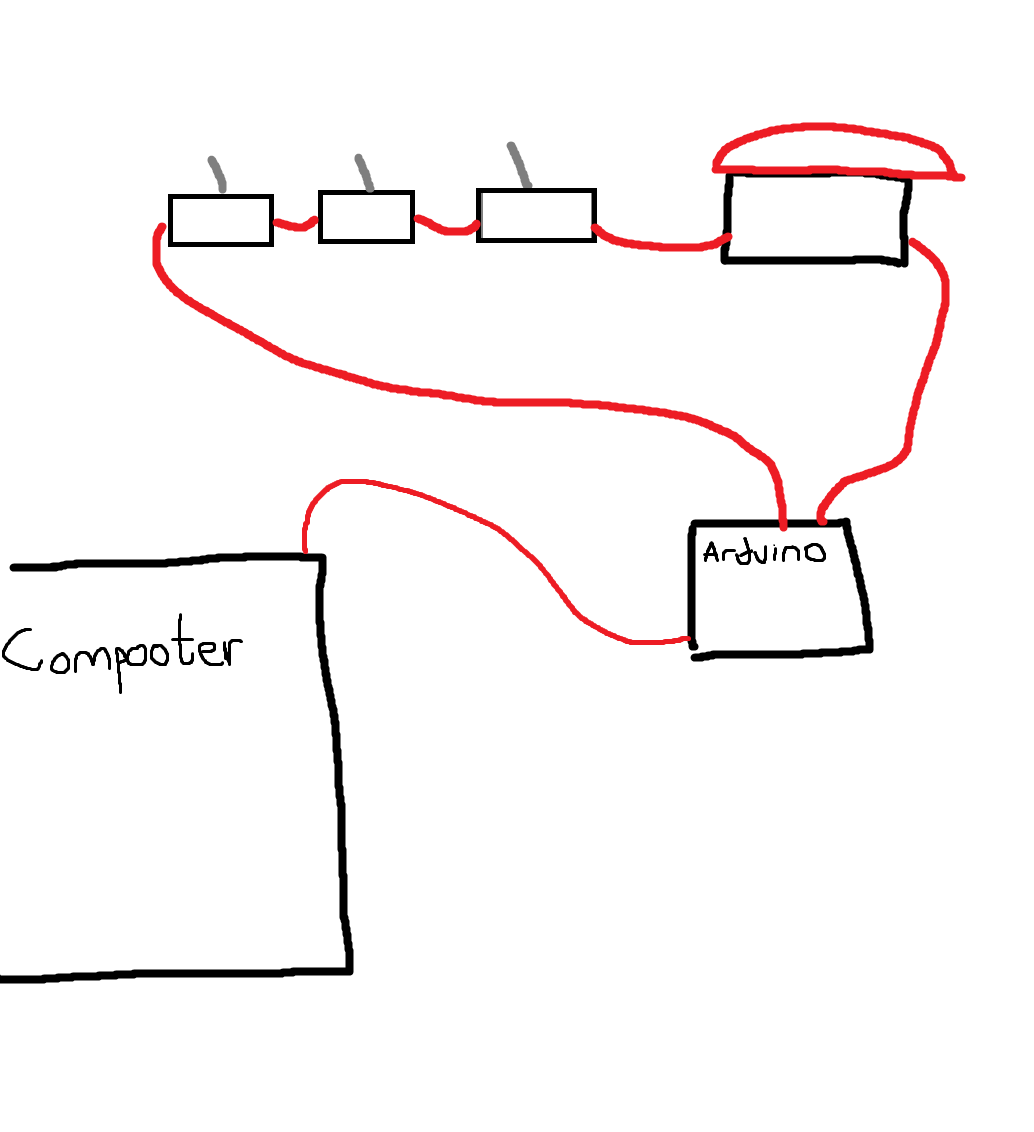 Arduino
Compooter